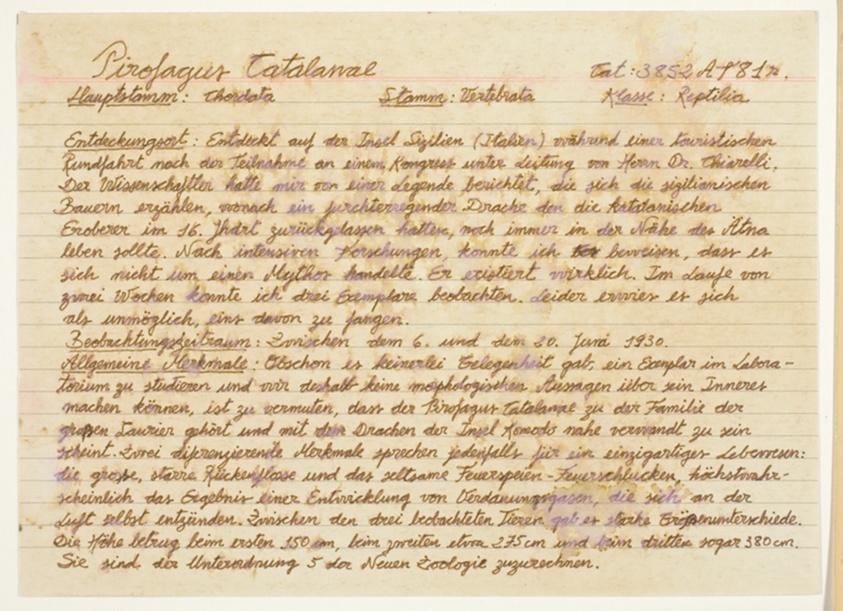 Pirofagus Catalanae Cat: 3852 AF81n.
Hauptstamm: Chordata Stamm: Vertebrata Klasse: Reptilia
Entdeckungsort: Entdeckt auf der Insel Sizilien (Italien) während einer touristischen
Rundfahrt nach der Teilnahme an einem Kongress unter Leitung von Herrn Dr. Chiarelli.
Der Wissenschaftler hatte mir von einer Legende berichtet, die sich die sizilianischen
Bauern erzählen, wonach ein furchterregender Drache den die katalanischen
Eroberer im 16. Jhdrt zurückgelassen hatten, noch immer in der Nähe des Ätna
leben sollte. Nach intensiven Forschungen, konnte ich beweisen, dass es
sich nicht um einen Mythos handelte. Er existiert wirklich. Im Laufe von
zwei Wochen konnte ich drei Exemplare beobachten. Leider erwies es sich
als unmöglich, eins davon zu fangen.
Beobachtungszeitraum: Zwischen dem 6. und dem 20. Juni 1930.
Allgemeine Merkmale: Obschon es keinerlei Gelegenheit gab, ein Exemplar im Labora-
torium zu studieren und wir deshalb keine morphologischen Aussagen über sein Inneres
machen können, ist zu vermuten, dass der Pirofagus Catalanae zu der Familie der
großen Saurier gehört und mit dem Drachen der Insel Komodo nahe verwandt zu sein
scheint. Zwei diferenzierende Merkmale sprechen jedenfalls für ein einzigartiges Lebewesen:
die grosse, starre Rückenflosse und das seltsame Feuerspeien-Feuerschlucken, höchstwahr-
scheinlich das Ergebnis einer Entwicklung von Verdauungsgasen, die sich an der
Luft selbst entzünden. Zwischen den drei beobachteten Tieren gab es starke Größenunterschiede.
Die Höhe betrug beim ersten 150 cm, beim zweiten etwa 275 cm und beim dritten sogar 380 cm.
Sie sind der Unterordnung 5 der Neuen Zoologie zuzurechnen.